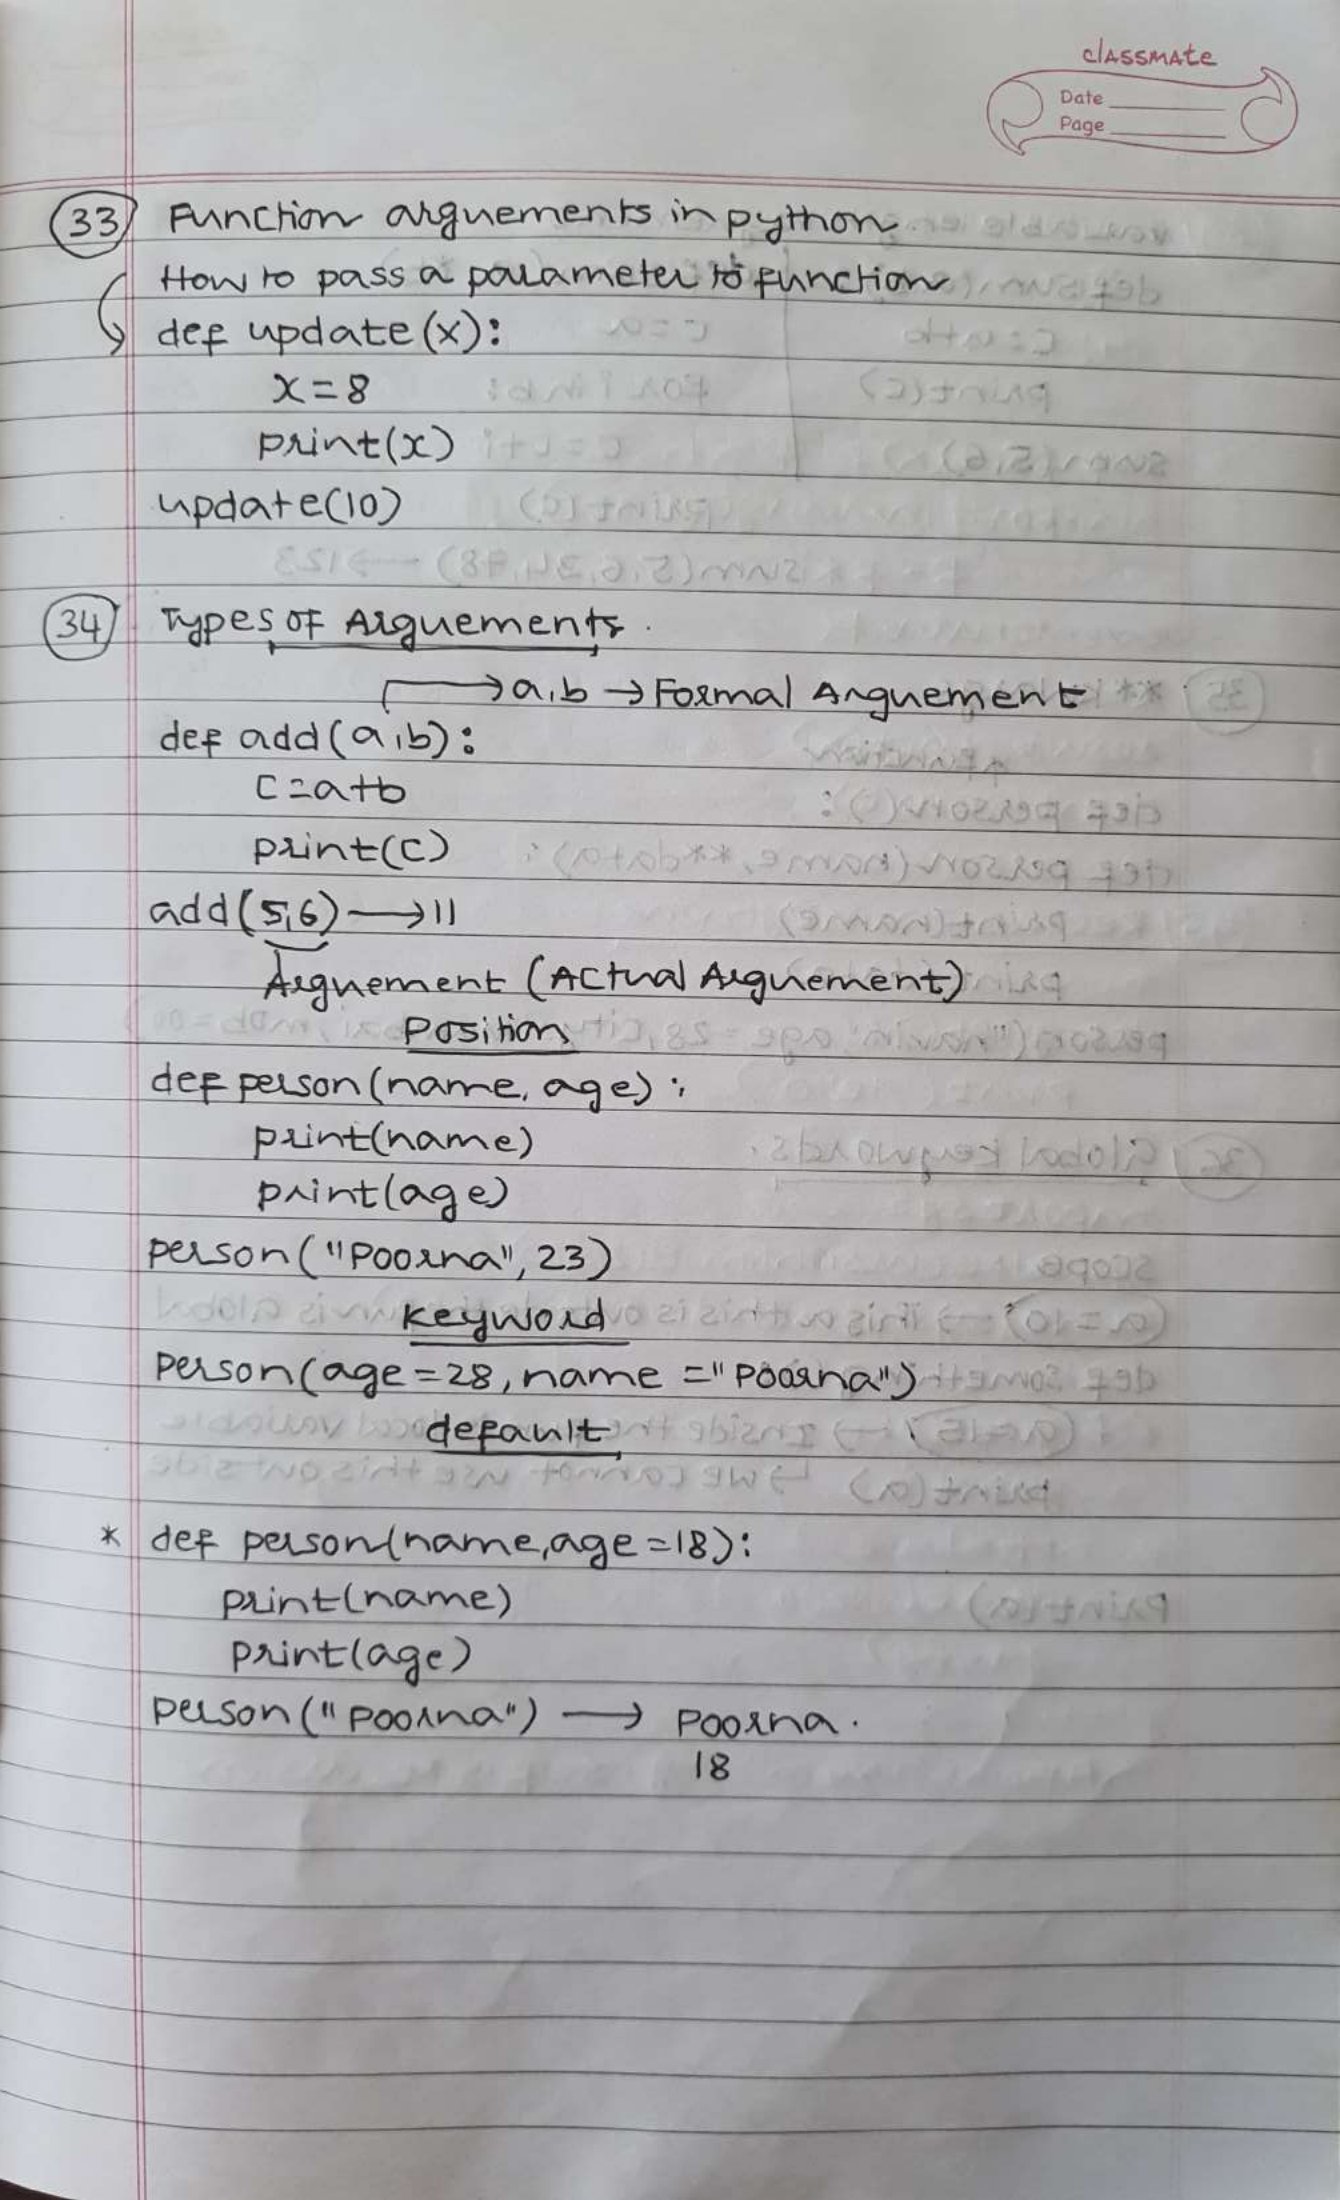 classmate
Date
Page
33 Function arguements in python
How to pass a parameter to function
def update(x):
x=8
print(x)
update(10)
34 Types of Arguements.
→ a,b → Formal Arguement
def add(a,b):
c=a+b
print(c)
add(5,6) → 11
Arguement (Actual Arguement)
Position
def person(name, age):
print(name)
print(age)
person("Poorna", 23)
keyword
person(age=28, name="Poorna")
default
* def person(name,age=18):
print(name)
print(age)
person("Poorna") → Poorna.
18